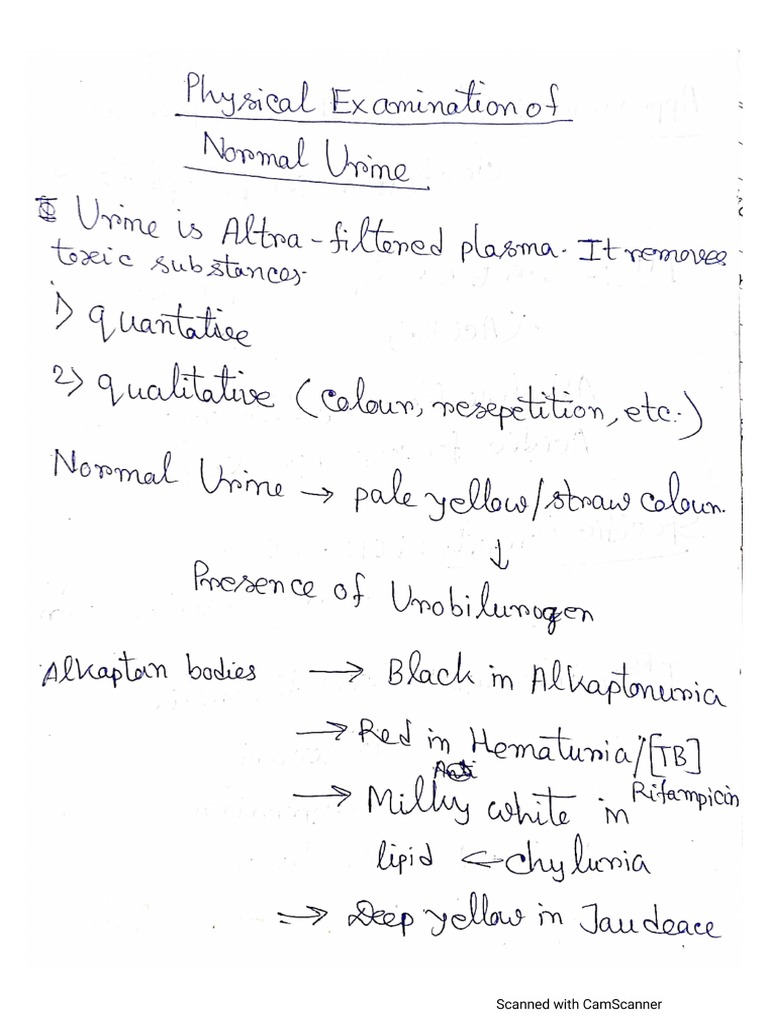 Physical Examination of
Normal Urine
Urine is Altra-filtered plasma. It removes
toxic substances.
1) quantative
2) qualitative (colour, resepetition, etc.)
Normal Urine → pale yellow/straw colour.
↓
Presence of Urobilunogen
Alkaptan bodies → Black in Alkaptonuria
→ Red in Hematuria/[TB]
Rifampicin
→ Milky white in
lipid ← chyluria
⇒ Deep yellow in Jaudeace
Scanned with CamScanner